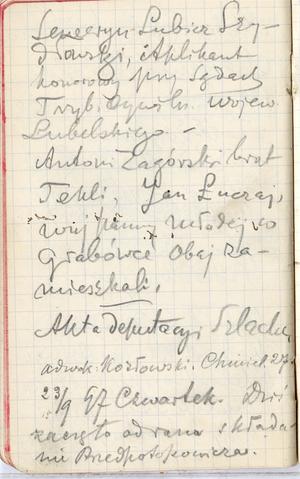 Seweryn Lubicz Szy-
dłowski, Aplikant
honorowy przy Sądach
Tryb. Cywiln. wojew.
Lubelskiego. —
Antoni Zagórski brat
Tekli, Jan Łuczaj,
wuj panny młodej, w
Grabówce obaj za-
mieszkali.
Akta deputacyi Szlach.
adwok. Kozłowski. Chmiel. 27
23/9 57 Czwartek. Dziś
zaczęto od rana składa-
nie